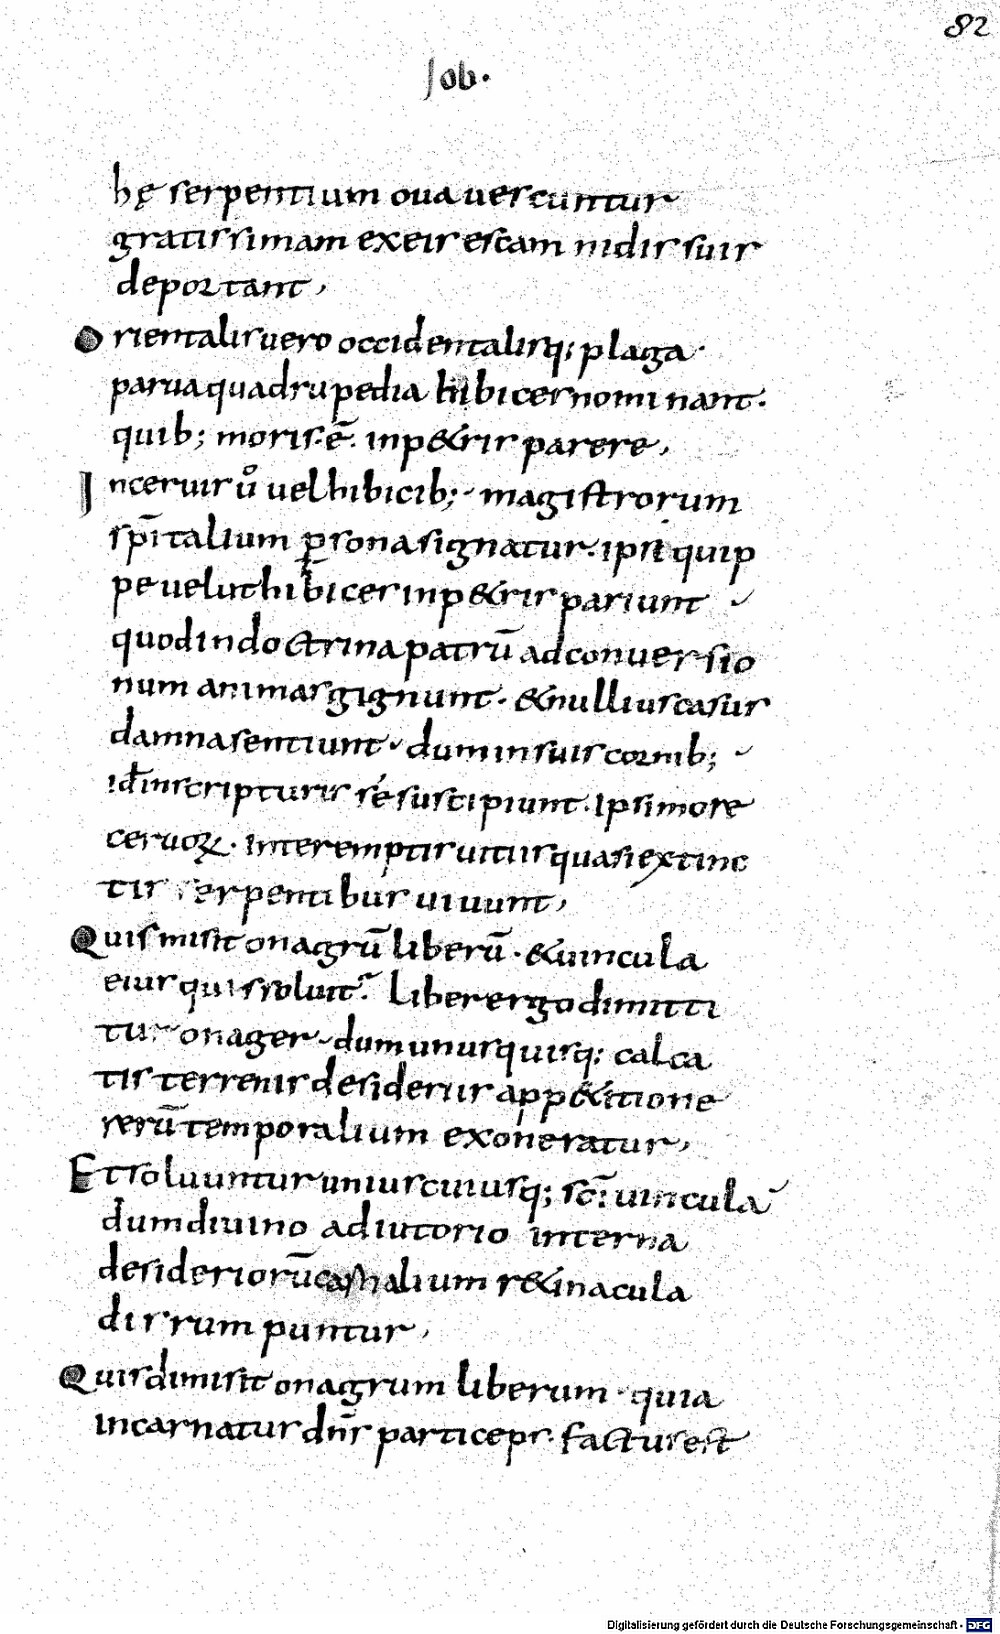 82
Job·
hę serpentium oua uescuntur
gratissimam ex eis escam nidis suis
deportant,
Orientalis uero occidentalisq; plaga·
parua quadrupedia hibices nominant·
quib; moris·ē· in p&ris parere,
In ceruis ů uel hibicib; magistrorum
spītalium ꝑsona signatur· ipsi quip
pe uelut hibices in p&ris pariunt
quod in doctrina patrū ad conuersio
num animas gignunt· & nullius casus
damna sentiunt dum in suis cornib;
id̄ in scripturis sé suscipiunt· Ipsi more
ceruoꝝ· interemptis uitiis quasi extinc
tis serpentibus uiuunt,
Quis misit onagrū liberū· & uincula
eius quis soluit? Liber ergo dimitti
tur onager dum unusquisq; calca
tis terrenis desideriis app&itione
rerū temporalium exoneratur,
Et soluuntur uniuscuiusq; scī uincula
dum diuino adiutorio interna
desideriorū carnalium r&inacula
disrumpuntur,
Quis dimisit onagrum liberum· quia
incarnatus dn̄s particeps· factus est
Digitalisierung gefördert durch die Deutsche Forschungsgemeinschaft - DFG